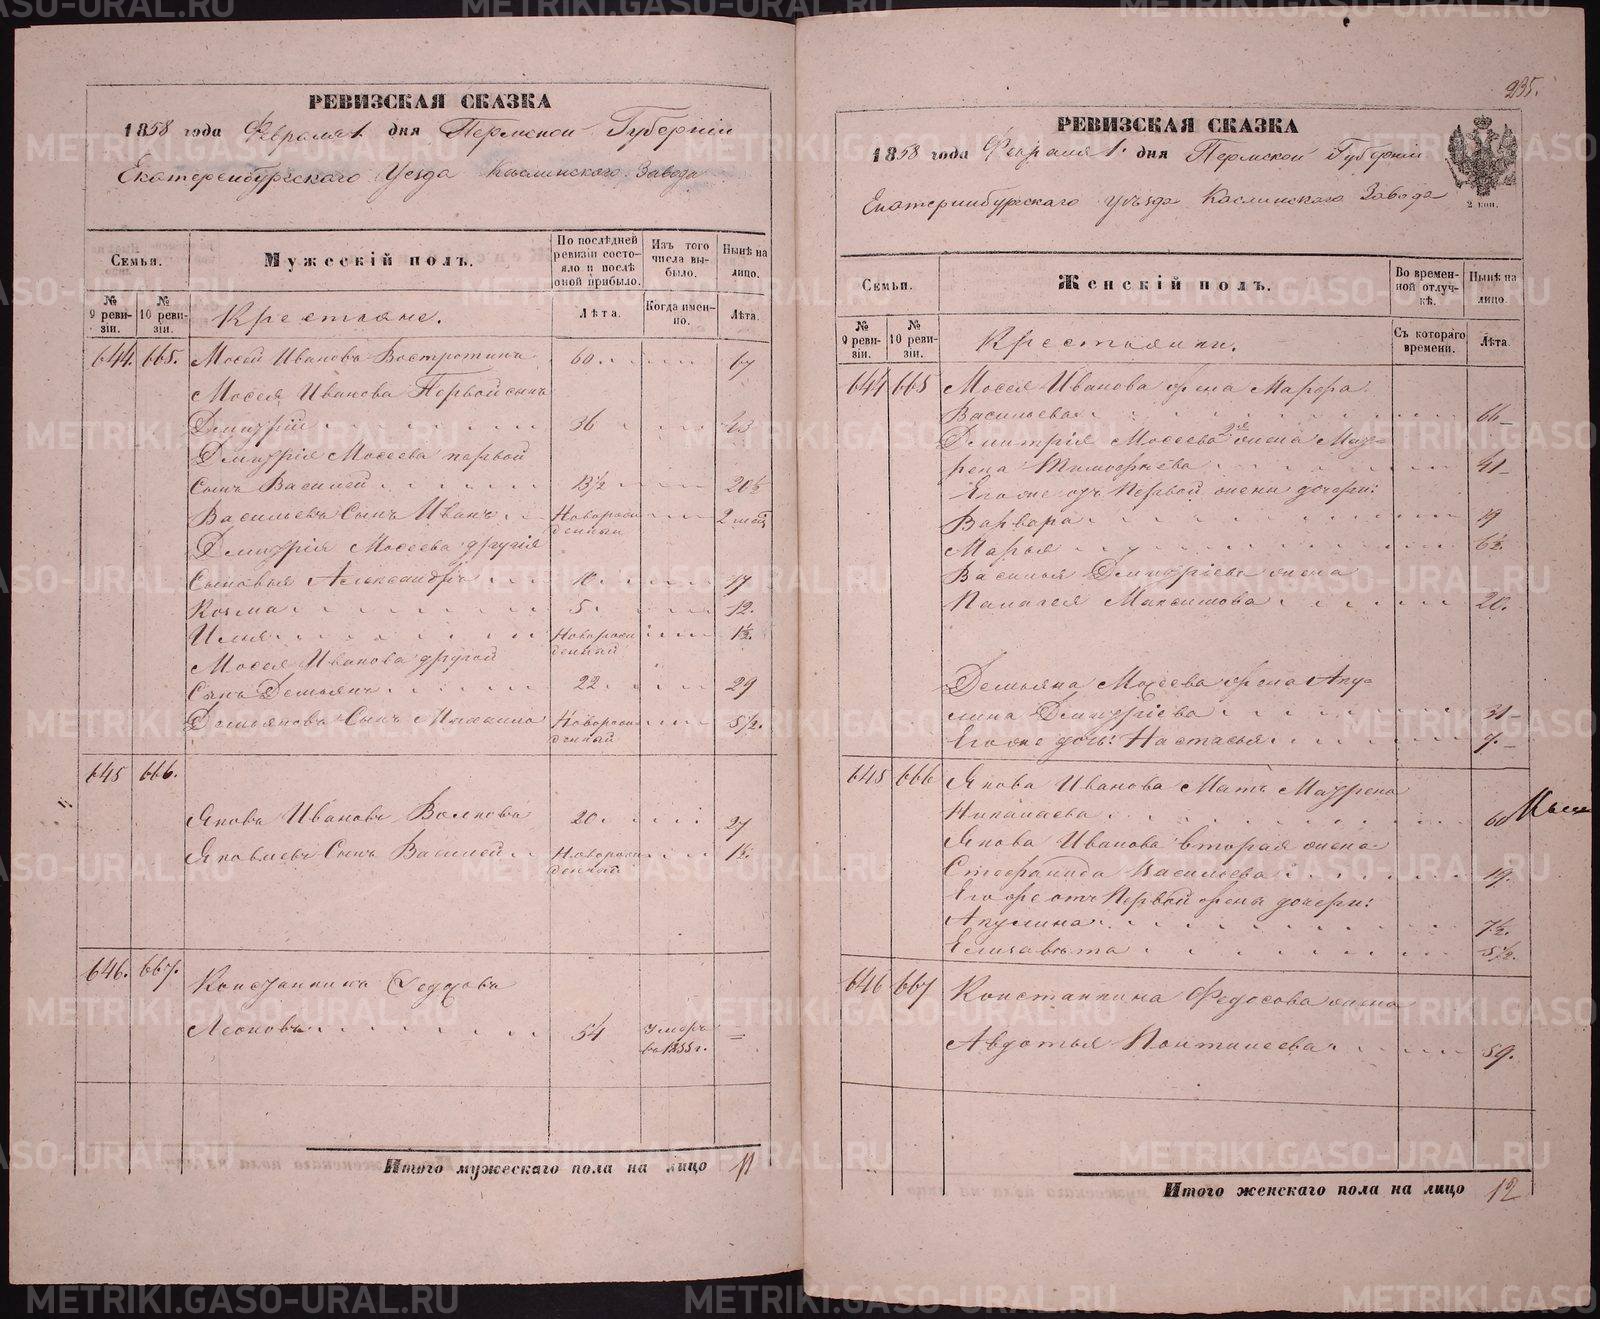 РЕВИЗСКАЯ СКАЗКА
1858 года Февраля 1. дня Пермской Губернiи
Екатеренбургскаго Уезда Каслинскаго Завода
Семьи.
Мужескiй полъ.
По послѣдней ревизiи состояло и послѣ оной прибыло.
Изъ того числа выбыло.
Нынѣ на лицо.
№ 9 ревизiи.
№ 10 ревизiи.
Крестьяне.
Лѣта.
Когда именно.
Лѣта.
644. 665. Мосей Ивановъ Востротинъ 60 67
Мосея Иванова Первой сынъ
Дмитрiй 36 43
Дмитрiя Мосеева первой
Сынъ Василей 13½ 20½
Васильевъ Сынъ Иванъ Новорожденный 2 мес
Дмитрiя Мосеева другiя
Сыновья Александръ 10 17
Козма 5 12.
Илья Новорожденный 1½.
Мосея Иванова другой
Сынъ Демьянъ 22 29
Демьяновъ Сынъ Михаила Новорожденный 5½.
645 666.
Яковъ Ивановъ Волковъ 20 27
Яковлевъ Сынъ Василей Новорожденный 1½
646. 667.
Константинъ Федосовъ
Леоновъ 54 умеръ въ 1855 г. =
Итого мужескаго пола на лицо 11
235.
РЕВИЗСКАЯ СКАЗКА
1858 года Февраля 1. дня Пермской Губернiи
Екатеринбургскаго Уѣзда Каслинскаго Завода
2 коп.
Семьи.
Женскiй полъ.
Во временной отлучкѣ.
Нынѣ на лицо.
№ 9 ревизiи.
№ 10 ревизiи.
Крестьянки.
Съ котораго времени.
Лѣта.
644 665 Мосея Иванова жена Марфа
Васильева 66
Дмитрiя Мосеева 2я жена Мат-
рена Тимофѣева 41
Его же отъ Первой жены дочери:
Варвара 19
Марья 6½
Василья Дмитрiева жена
Палагея Максимова 20.
Демьяна Мосеева жена Аку-
лина Дмитрiева 31
Его же дочь: Настасья 7.
645 666 Якова Иванова Мать Матрена
Николаева 60
Якова Иванова вторая жена
Стефанида Васильева 19.
Его же отъ Первой жены дочери:
Акулина 7½.
Елизавета 5½.
646 667 Константина Федосова жена
Авдотья Пантилеева 59.
Итого женскаго пола на лицо 12
METRIKI.GASO-URAL.RU